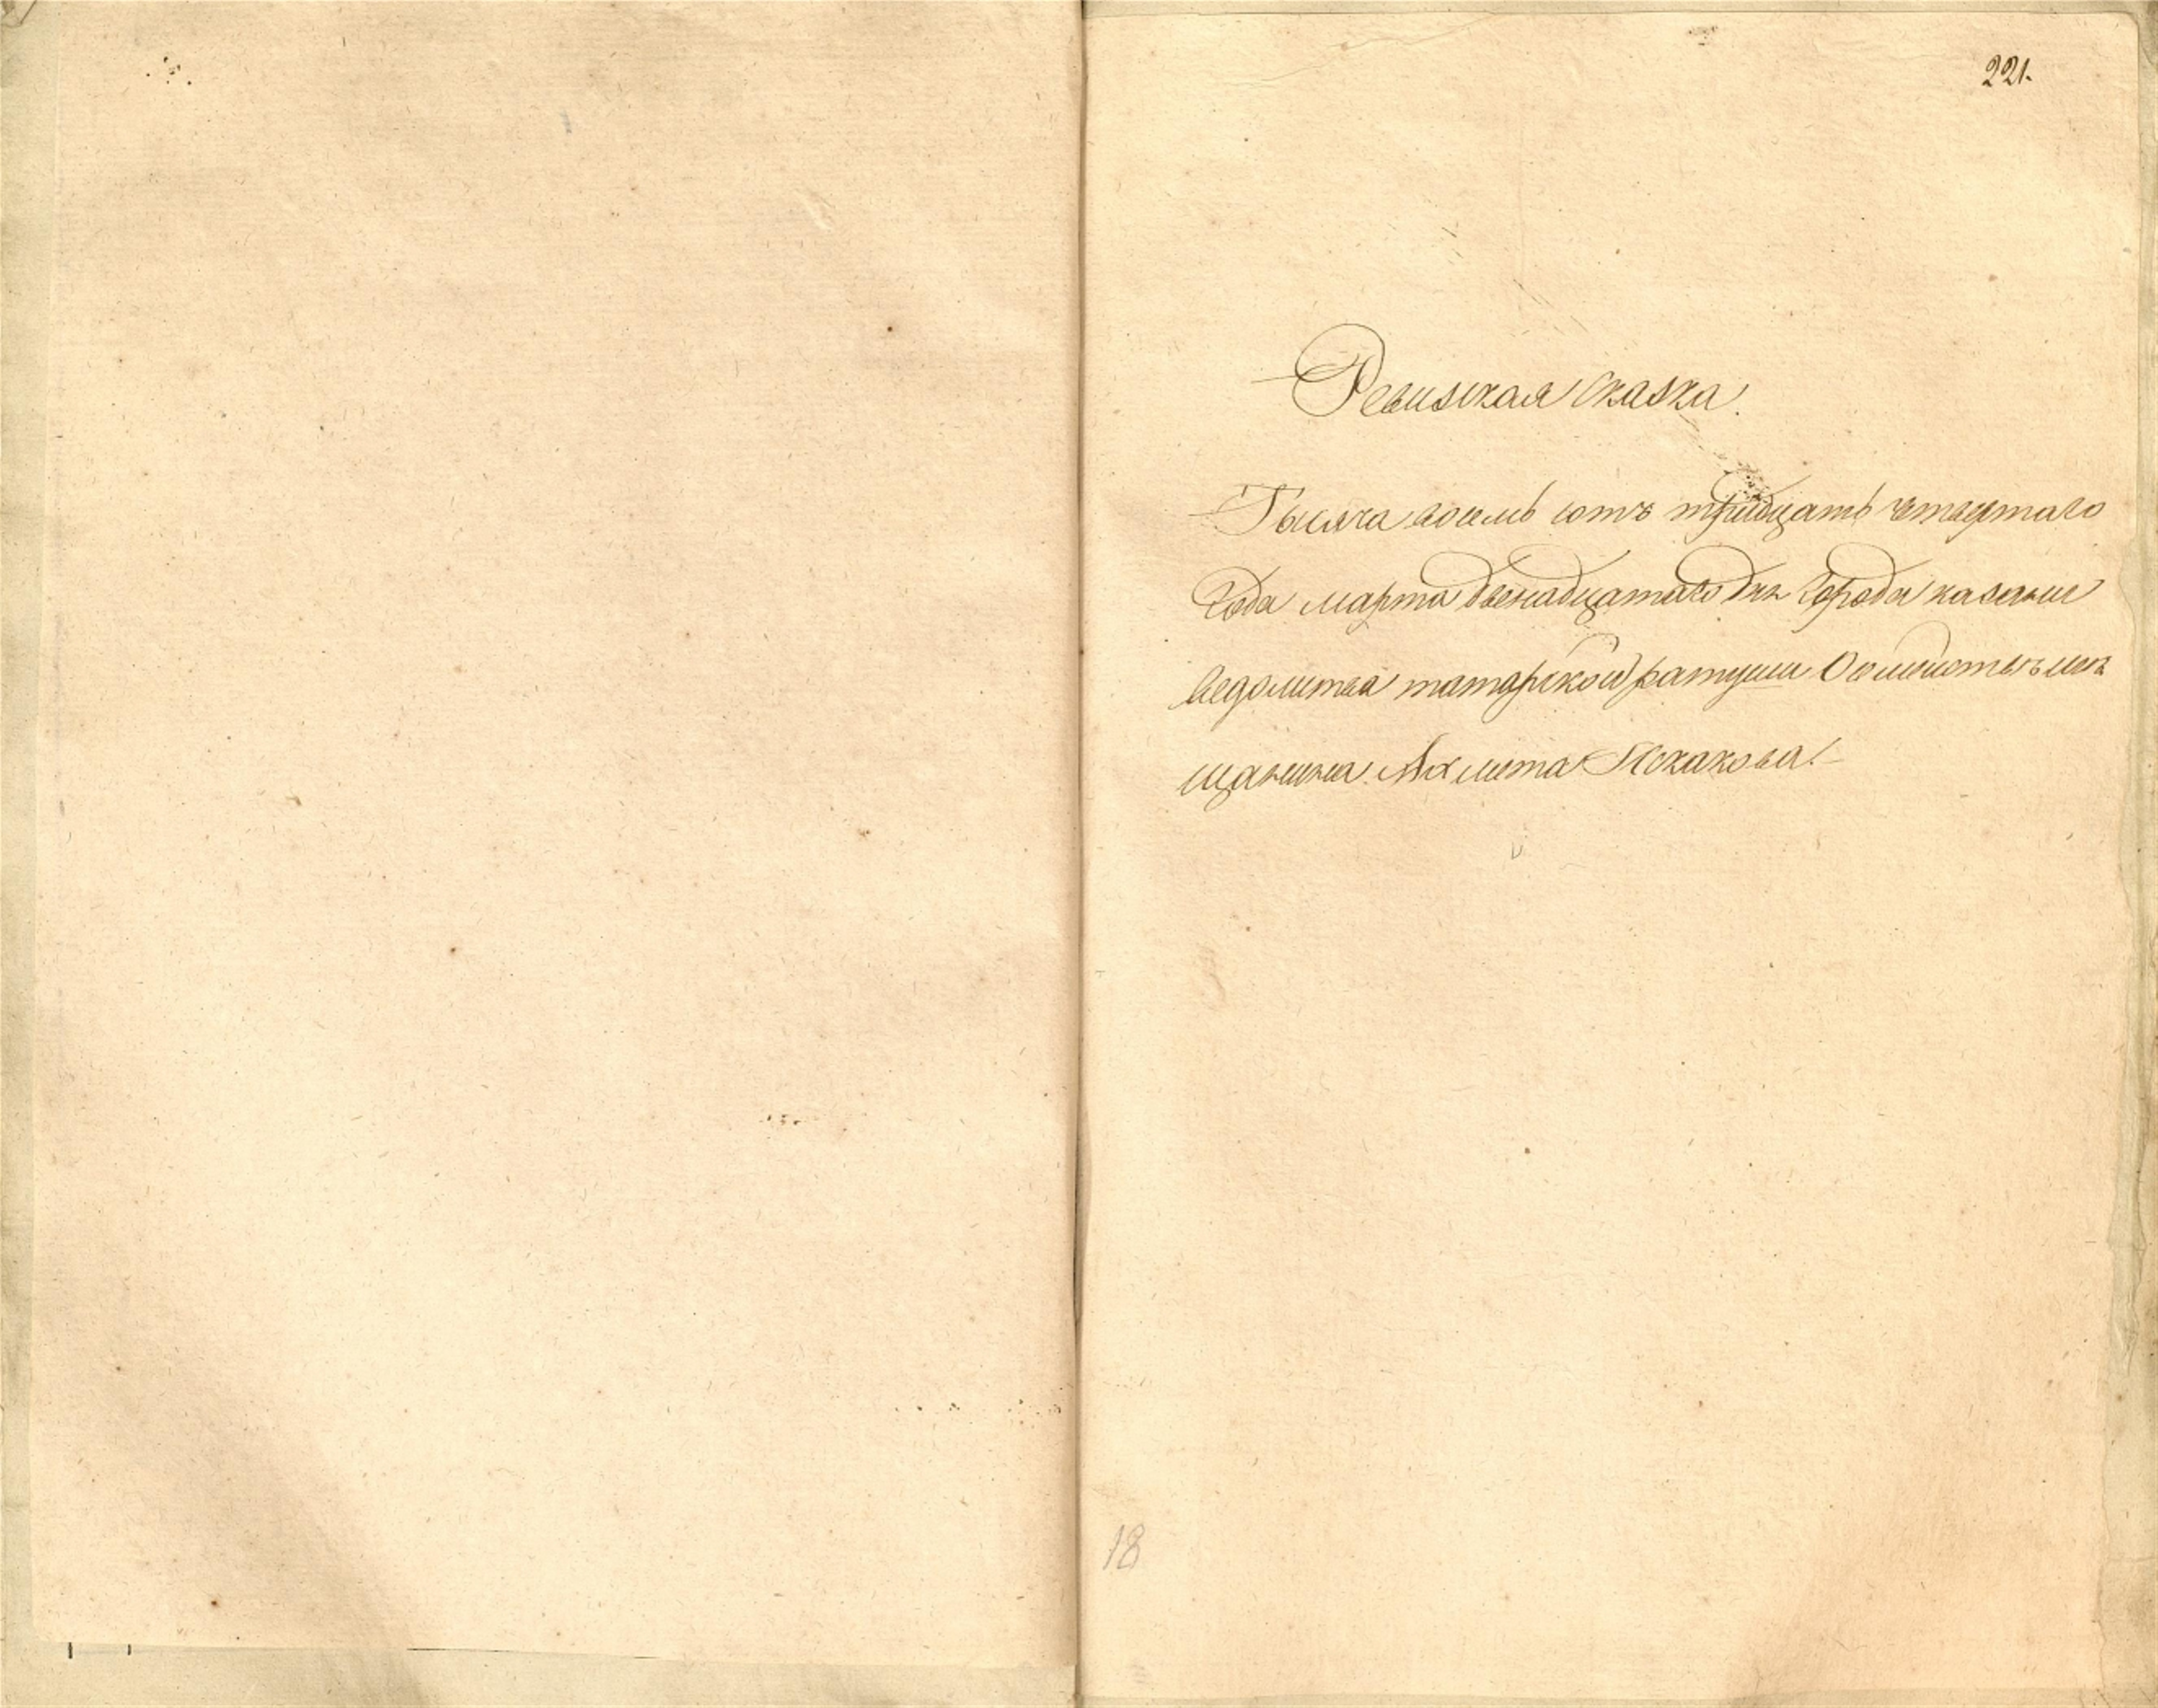 221.
Ревизская сказка.
Тысяча восемь сотъ тридцать четвертаго
Года марта двенадцатаго дня Города казани
ведомства татарской ратуши О семействе ме
щанина Ахмета Искакова!
18